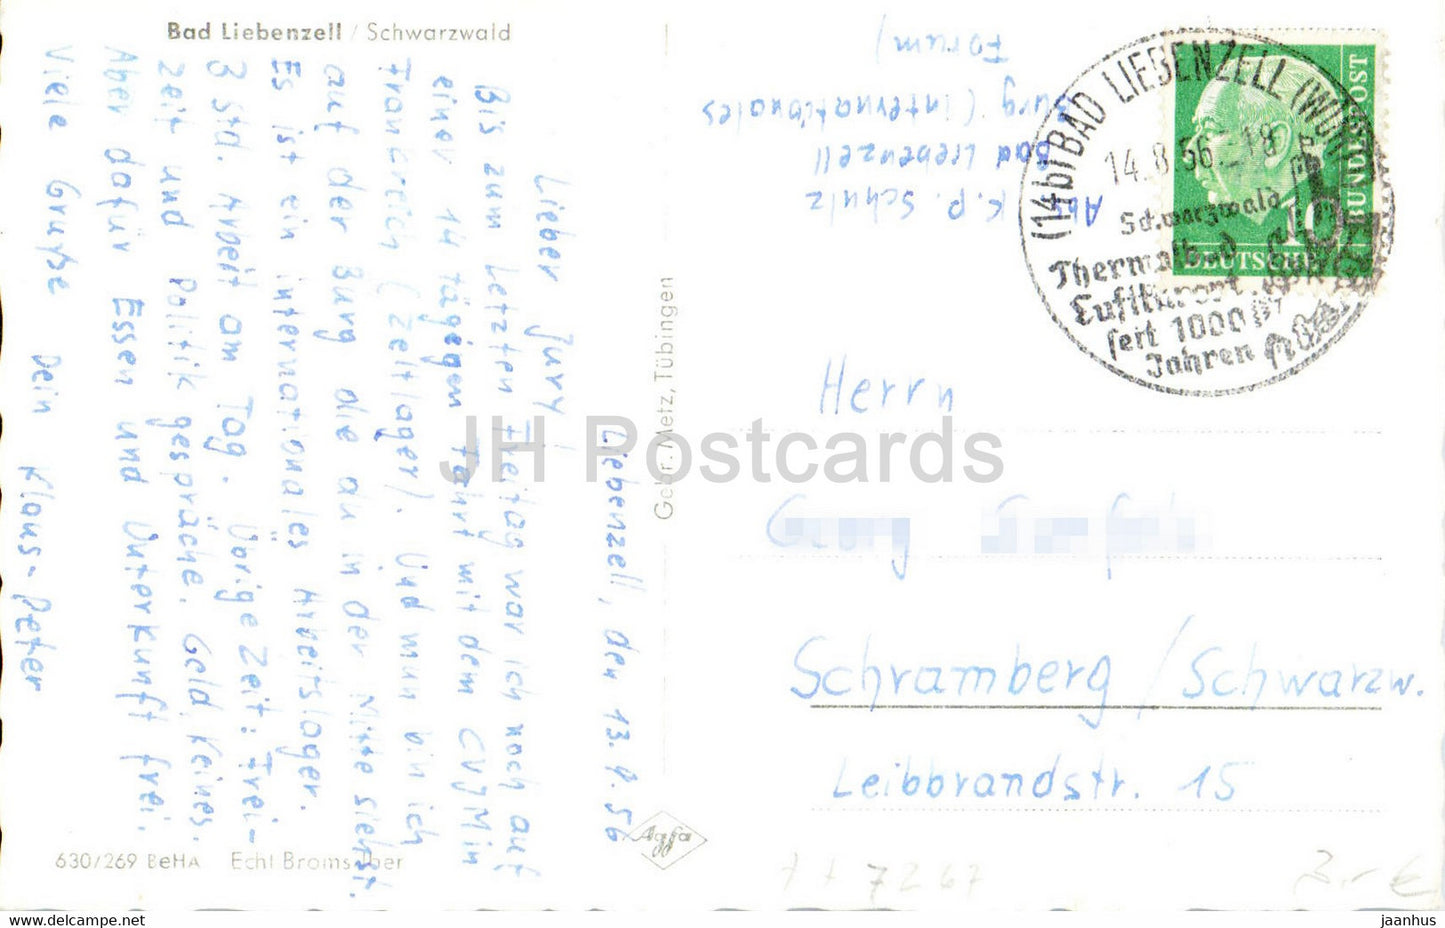 Bad Liebenzell / Schwarzwald
Liebenzell, den 13.8.56
Lieber Jury!
Bis zum letzten Freitag war ich noch auf
einer 14 tägigen Fahrt mit dem CVJM in
Frankreich (Zeltlager). Und nun bin ich
auf der Burg die du in der Mitte siehst.
Es ist ein internationales Arbeitslager.
3 Std. Arbeit am Tag. Übrige Zeit: Frei-
zeit und Politik gespräche. Geld keines.
Aber dafür Essen und Unterkunft frei.
Viele Grüße Dein Klaus-Peter
630/269 BeHA Echt Bromsilber
Gebr. Metz, Tübingen
Agfa
Abs. K. P. Schulz
Bad Liebenzell
Burg (internationales
Forum)
(14b) BAD LIEBENZELL (WÜRTT)
14.8.56.-18
Schwarzwald
Thermalbad
Luftkurort
seit 1000
Jahren
DEUTSCHE
BUNDESPOST
10
Herrn
Georg
Schramberg / Schwarzw.
Leibbrandstr. 15
77267
JH Postcards
jaanhus